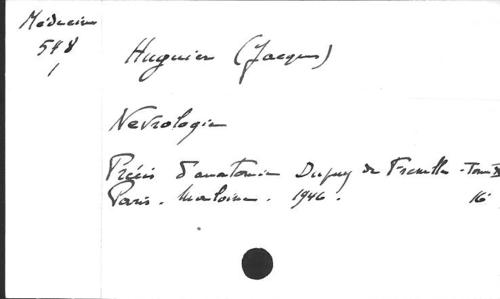 Médecine
548
1
Huguier (Jacques)
Nevrologie
Précis d'anatomie Dupuy de Frenelle - Tome
Paris. Maloine. 1946. 16